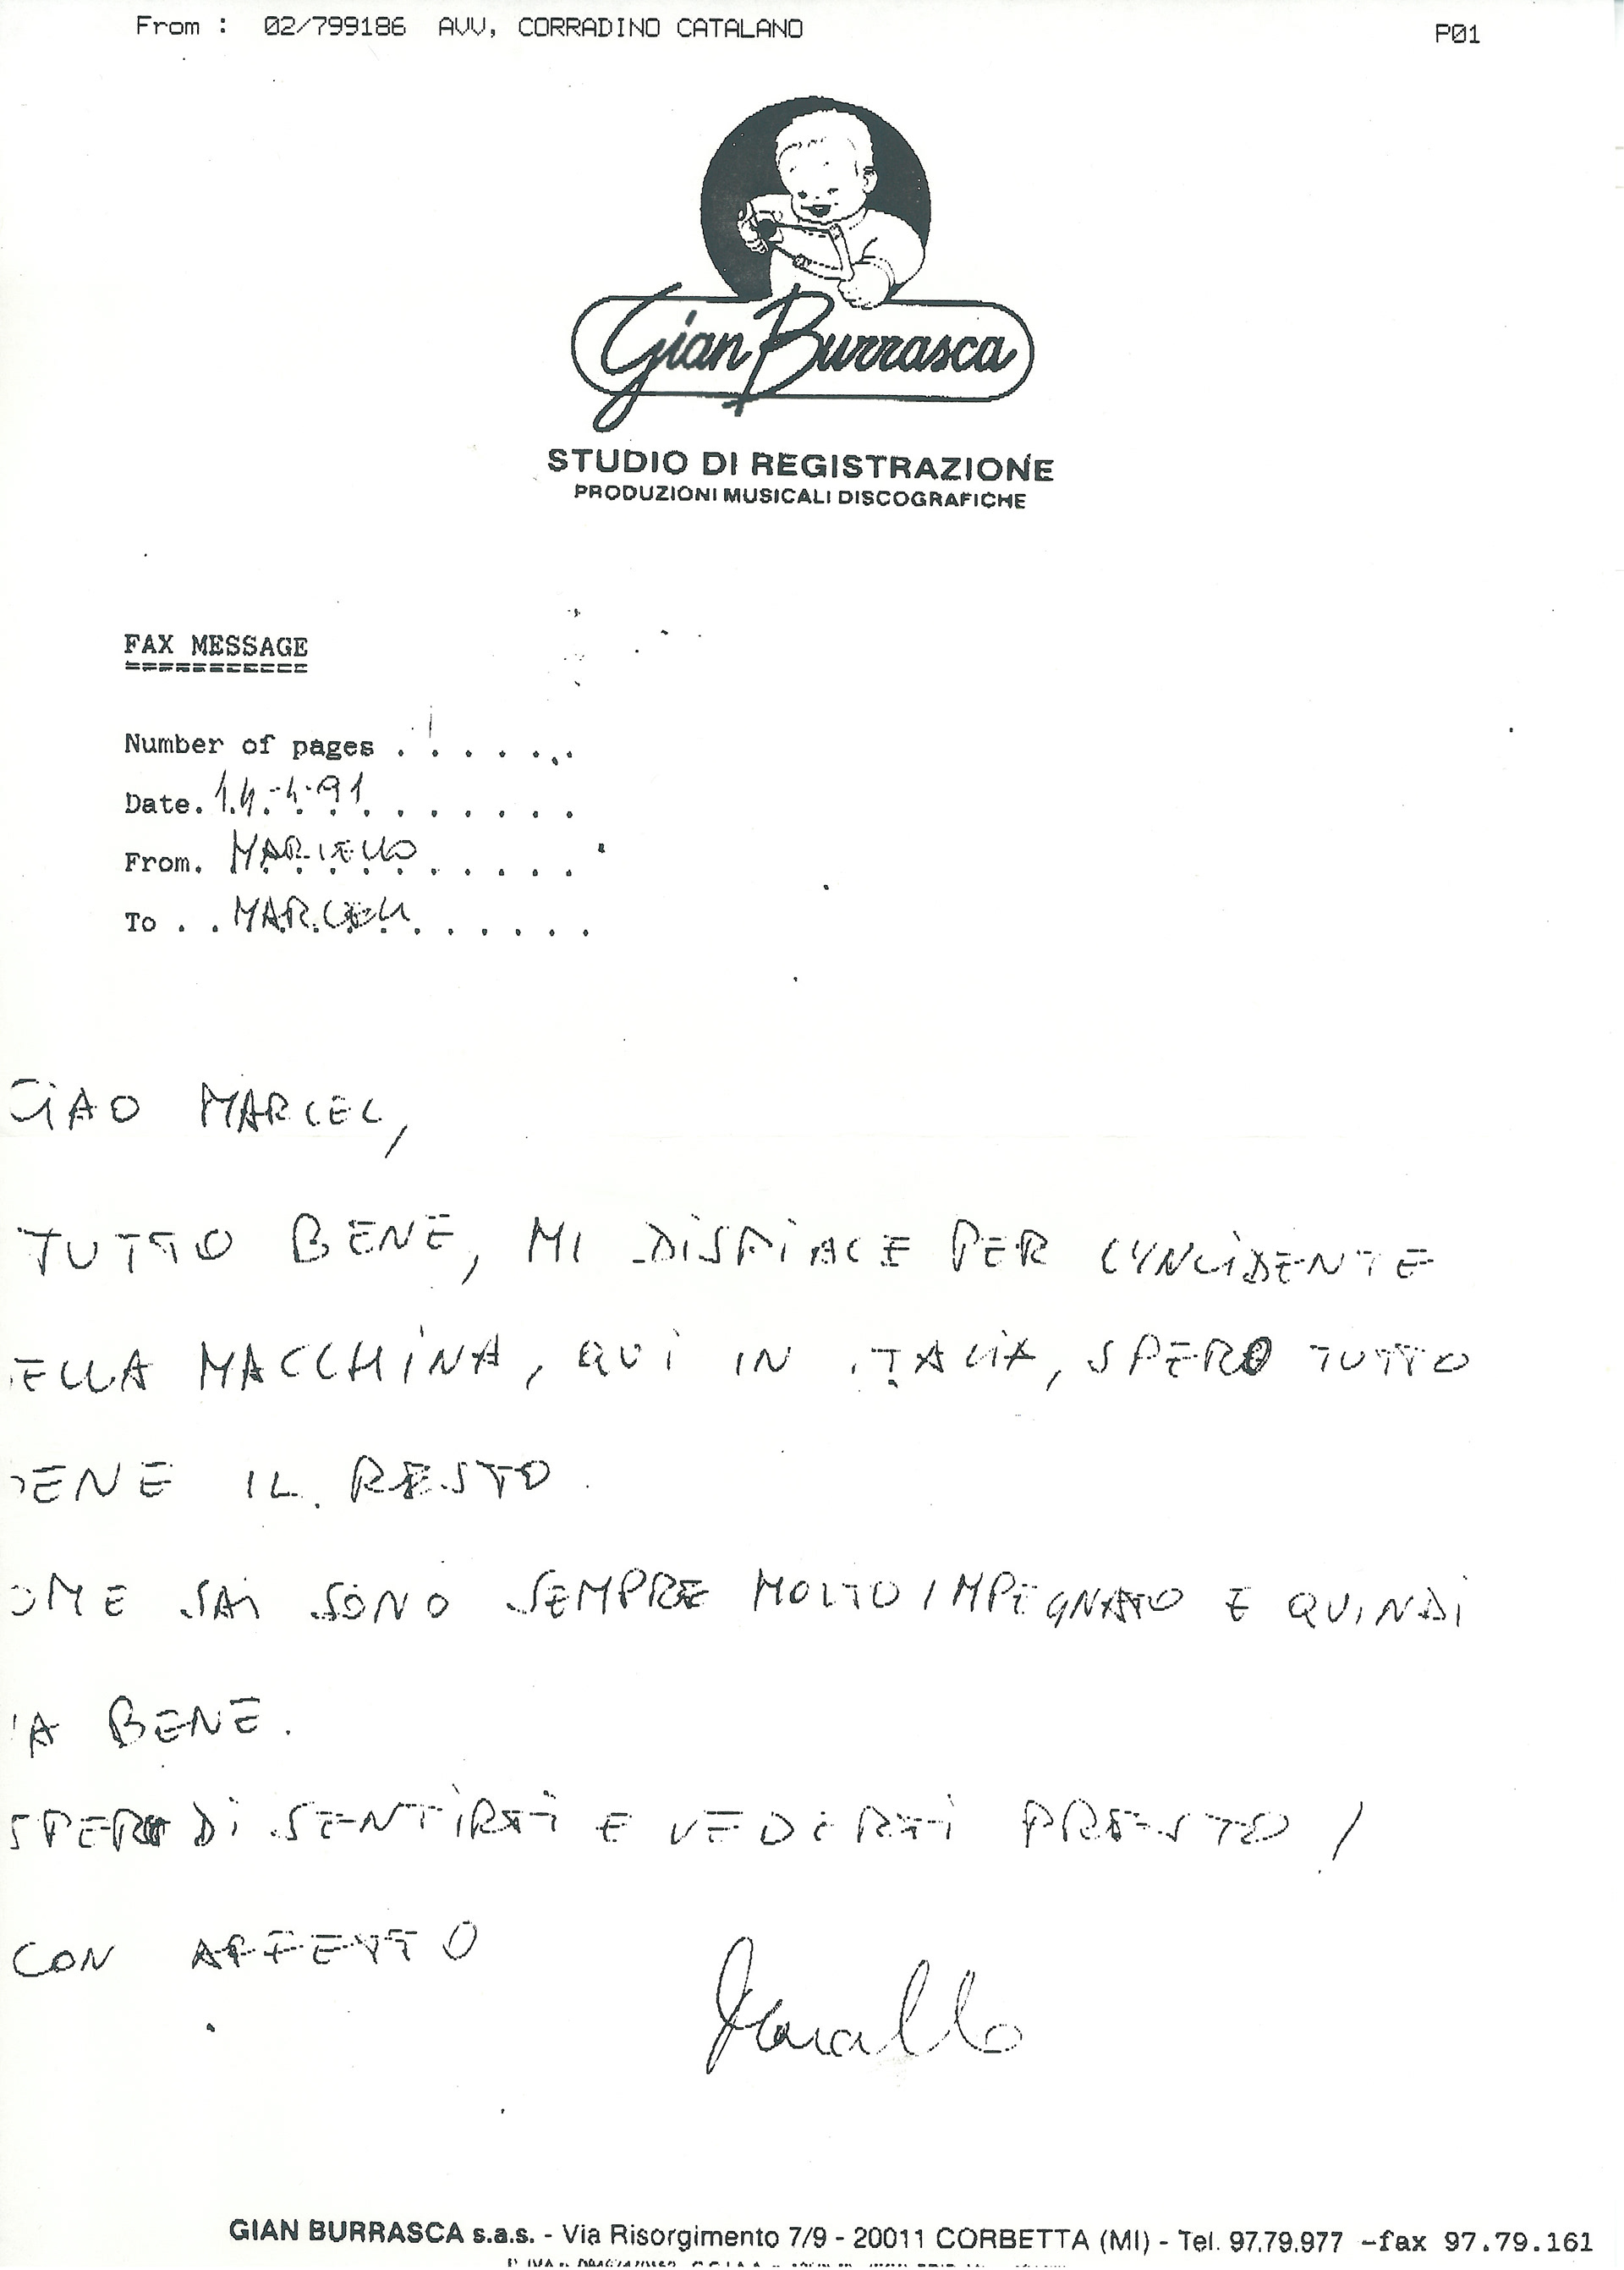 From : 02/799186 AVV, CORRADINO CATALANO P01
Gian Burrasca
STUDIO DI REGISTRAZIONE
PRODUZIONI MUSICALI DISCOGRAFICHE
FAX MESSAGE
Number of pages . . . . . .
Date. 14-4-91
From. MARIELLO
To . . MARCEL
CIAO MARCEL,
TUTTO BENE, MI DISPIACE PER L'INCIDENTE
ELLA MACCHINA, QUI IN ITALIA, SPERO TUTTO
ENE IL RESTO
OME SAI SONO SEMPRE MOLTO IMPEGNATO E QUINDI
A BENE.
SPERO DI SENTIRTI E VEDERTI PRESTO !
CON AFFETTO
GIAN BURRASCA s.a.s. - Via Risorgimento 7/9 - 20011 CORBETTA (MI) - Tel. 97.79.977 -fax 97.79.161